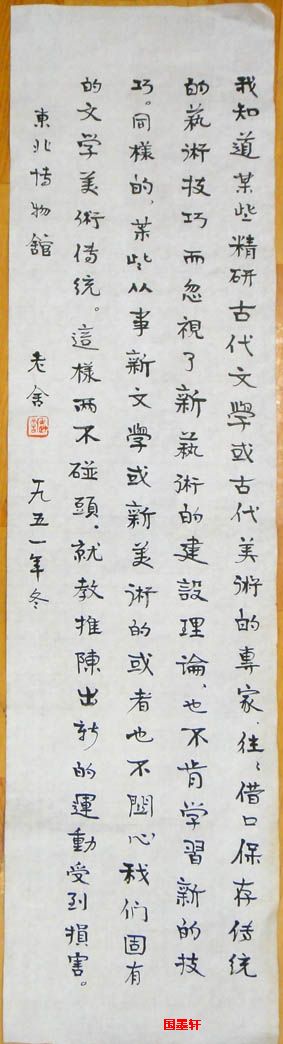 我知道某些精研古代文學或古代美術的專家、往々借口保存傳統
的藝術技巧而忽視了新藝術的建設理論、也不肯学習新的技
巧。同樣的、某些从事新文學或新美術的或者也不関心我们固有
的文学美術傳统。這樣两不碰頭、就教推陳出新的運動受到損害。
東北博物館 老舍 一九五一年冬
国墨轩